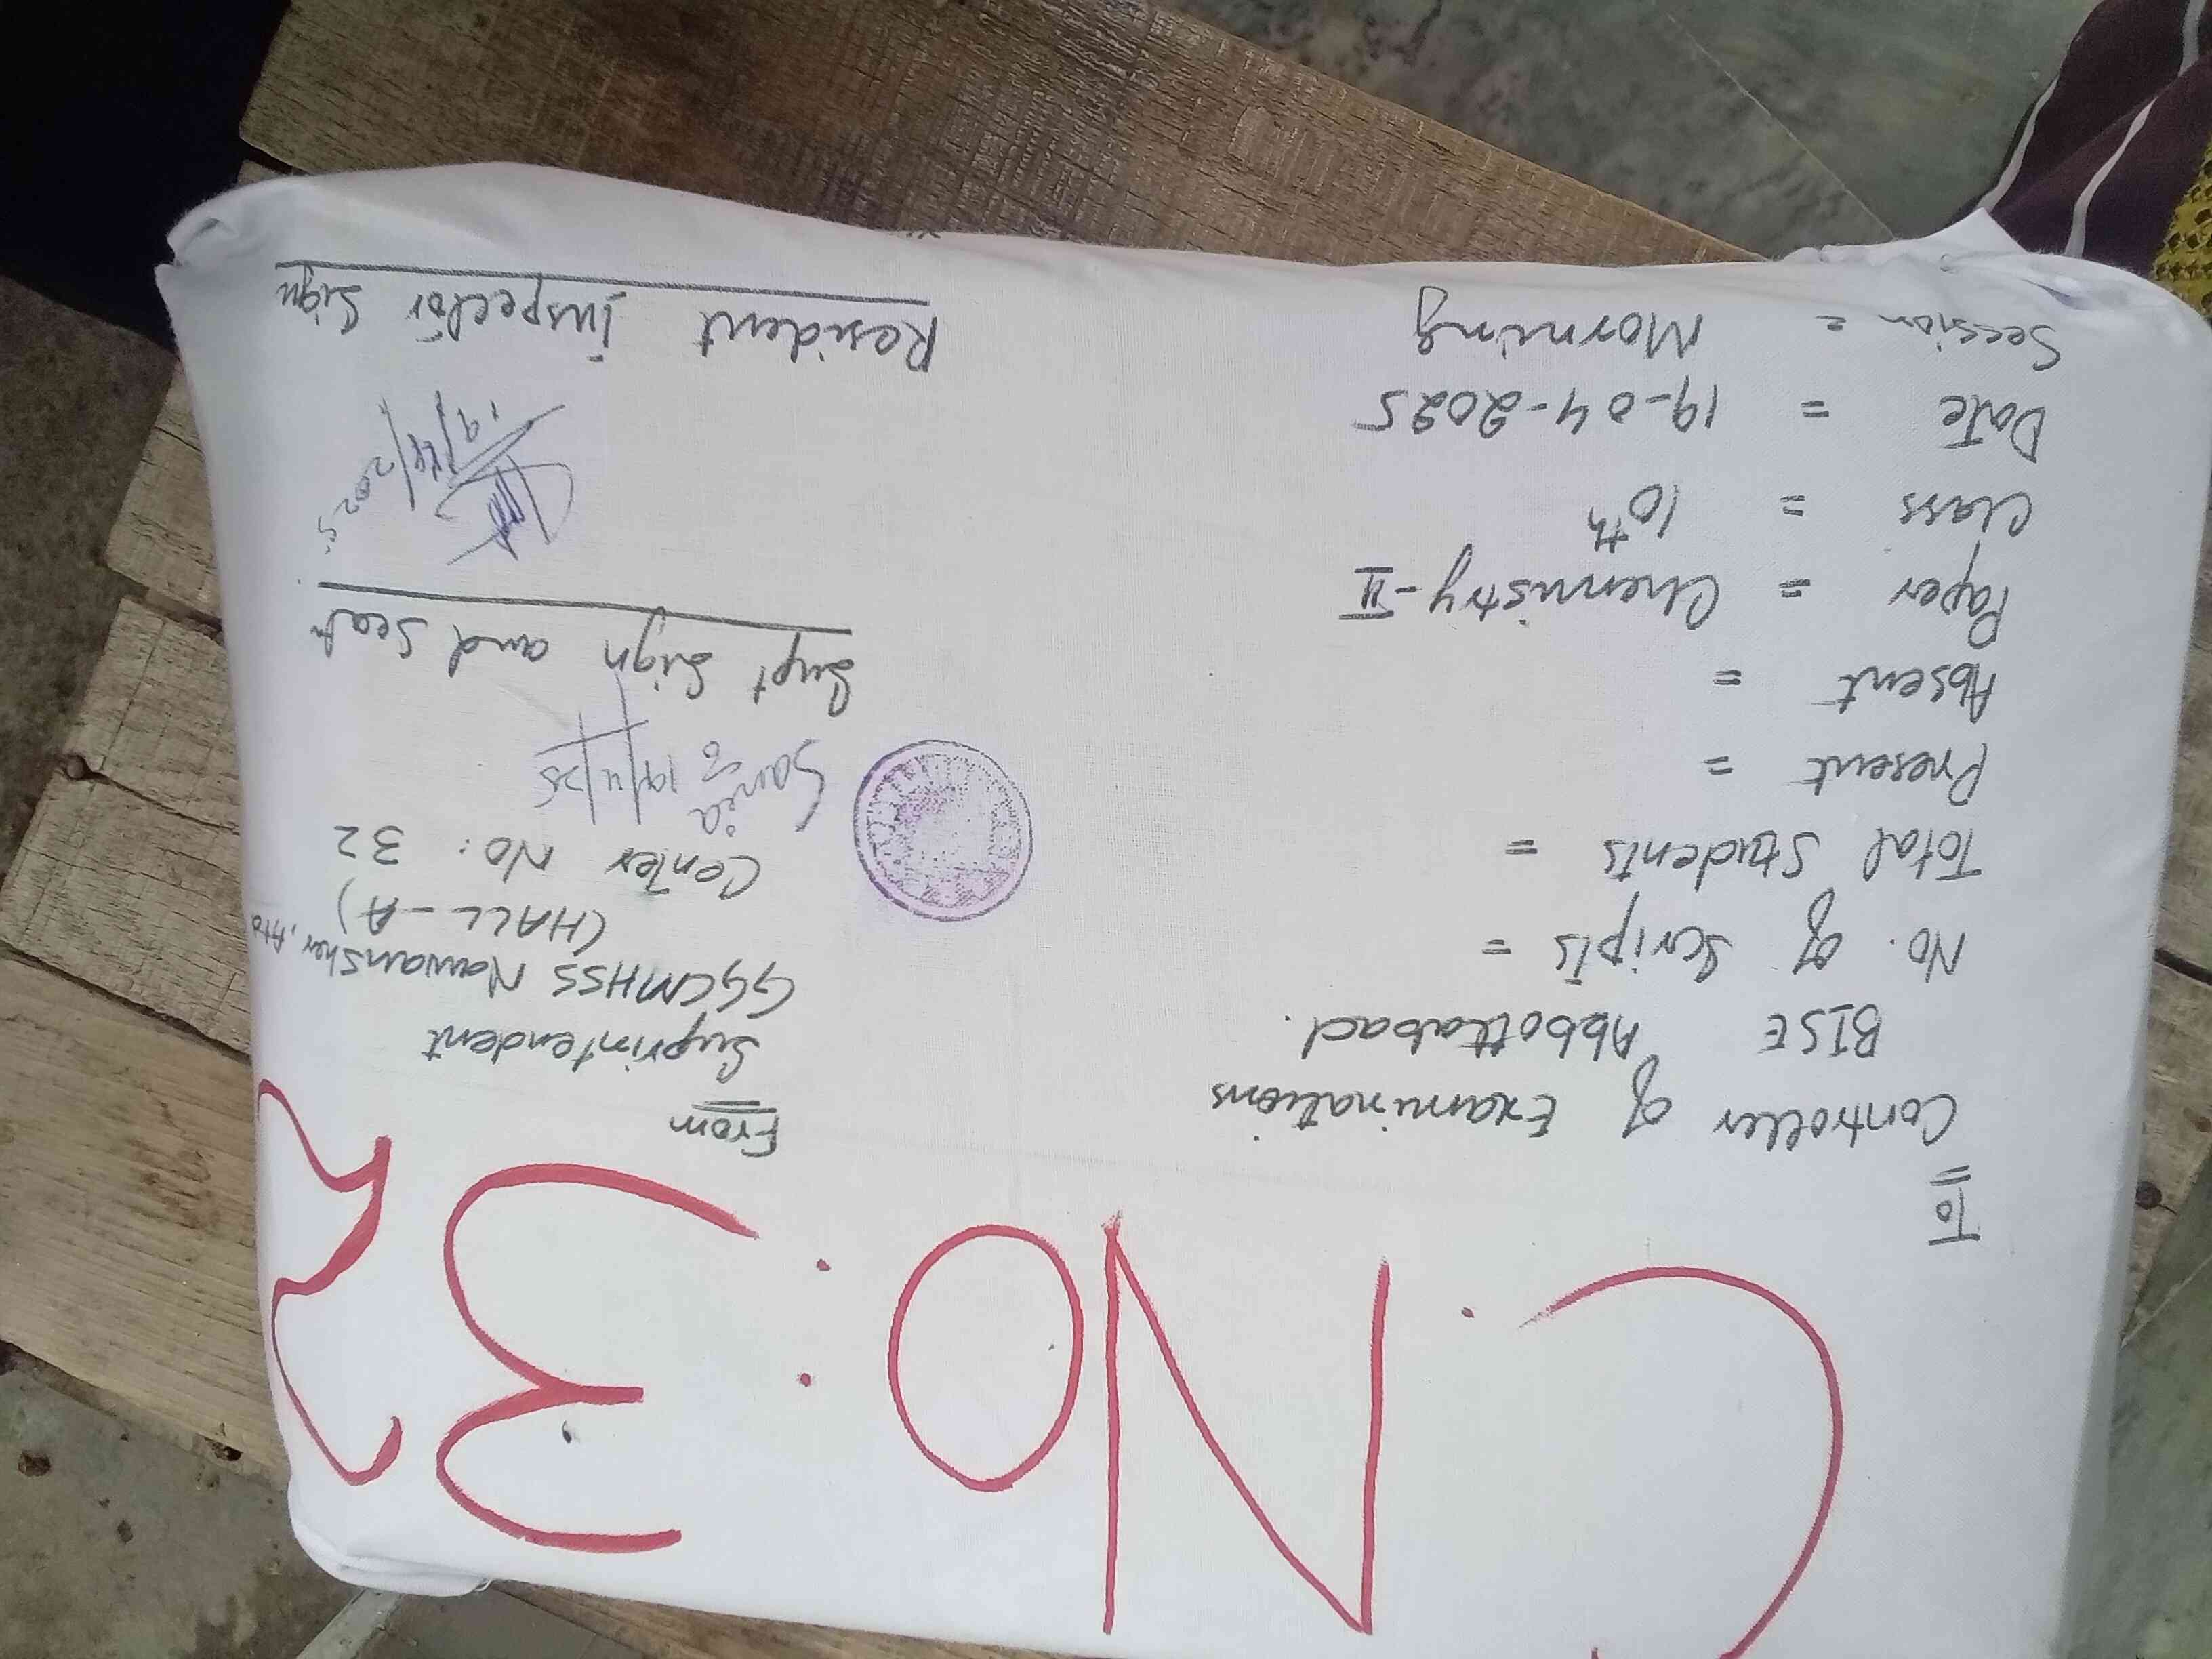 C.No: 32
To
Controller of Examinations
BISE Abbottabad.
No. of Scripts =
Total Students =
Present =
Absent =
Paper = Chemistry-II
Class = 10th
Date = 19-04-2025
Session = Morning
From
Suprintendent
GGCMHSS Nawansher, Atd
(HALL-A)
Center No: 32
Sania
19/4/25
Supt Sign and Seal
19/04/2025
Resident Inspector Sign